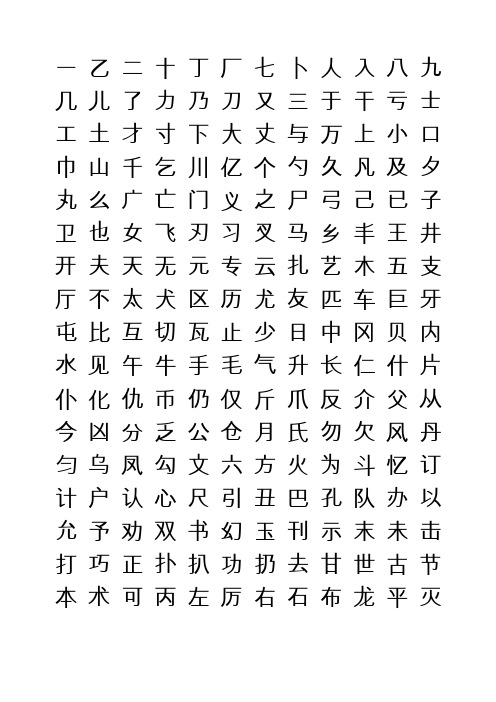 一 乙 二 十 丁 厂 七 卜 人 入 八 九
几 儿 了 力 乃 刀 又 三 于 干 亏 士
工 土 才 寸 下 大 丈 与 万 上 小 口
巾 山 千 乞 川 亿 个 勺 久 凡 及 夕
丸 么 广 亡 门 义 之 尸 弓 己 已 子
卫 也 女 飞 刃 习 叉 马 乡 丰 王 井
开 夫 天 无 元 专 云 扎 艺 木 五 支
厅 不 太 犬 区 历 尤 友 匹 车 巨 牙
屯 比 互 切 瓦 止 少 日 中 冈 贝 内
水 见 午 牛 手 毛 气 升 长 仁 什 片
仆 化 仇 币 仍 仅 斤 爪 反 介 父 从
今 凶 分 乏 公 仓 月 氏 勿 欠 风 丹
匀 乌 凤 勾 文 六 方 火 为 斗 忆 订
计 户 认 心 尺 引 丑 巴 孔 队 办 以
允 予 劝 双 书 幻 玉 刊 示 末 未 击
打 巧 正 扑 扒 功 扔 去 甘 世 古 节
本 术 可 丙 左 厉 右 石 布 龙 平 灭